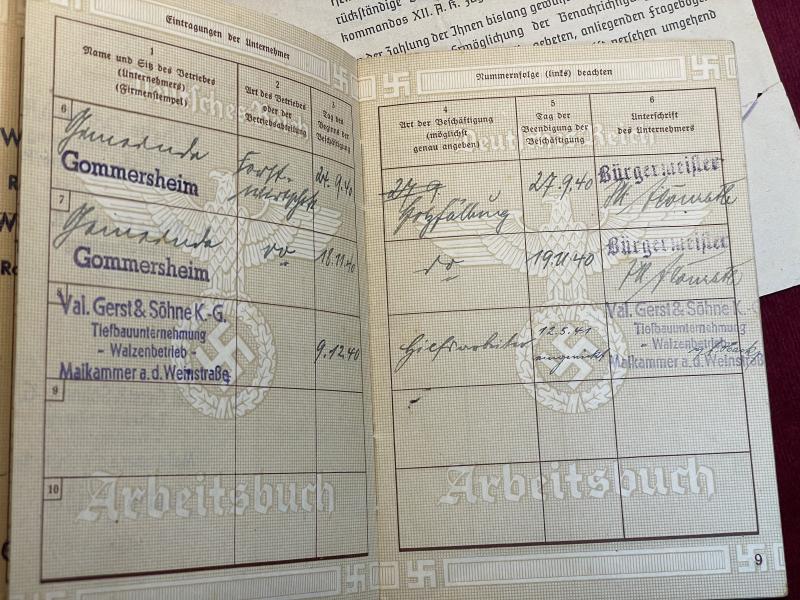 rückständige
kommandos XII. A. K.
der Zahlung der Ihnen bislang
Ermöglichung der Benachrichtigung
gebeten, anliegenden Fragebogen
versehen umgehend
Eintragungen der Unternehmer
1
Name und Sitz des Betriebes
(Unternehmers)
(Firmenstempel)
2
Art des Betriebes
oder der
Betriebsabteilung
3
Tag des
Beginns der
Beschäftigung
6
Gemeinde
Gommersheim
Forst-
wirtschft
24. 9. 40
7
Gemeinde
Gommersheim
do
18.11.40
8
Val. Gerst & Söhne K.-G.
Tiefbauunternehmung
- Walzenbetrieb -
Maikammer a. d. Weinstraße
9.12.40
9
10
Deutsches Reich
Arbeitsbuch
Nummernfolge (links) beachten
4
Art der Beschäftigung
(möglichst
genau angeben)
5
Tag der
Beendigung der
Beschäftigung
6
Unterschrift
des Unternehmers
27 9
Holzfällung
27.9.40
Bürgermeister
do
19.11.40
Bürgermeister
Hilfsarbeiter
12.5.41
eingerückt
Val. Gerst & Söhne K.-G.
Tiefbauunternehmung
- Walzenbetrieb -
Maikammer a. d. Weinstraße
Deutsches Reich
Arbeitsbuch
9